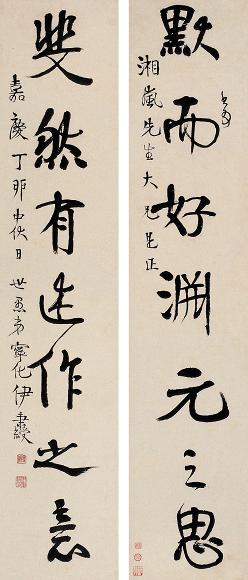 默而好淵元之思
湘嵐先生大兄是正
斐然有述作之意
嘉慶丁卯中伏日 世愚弟寧化伊秉綬